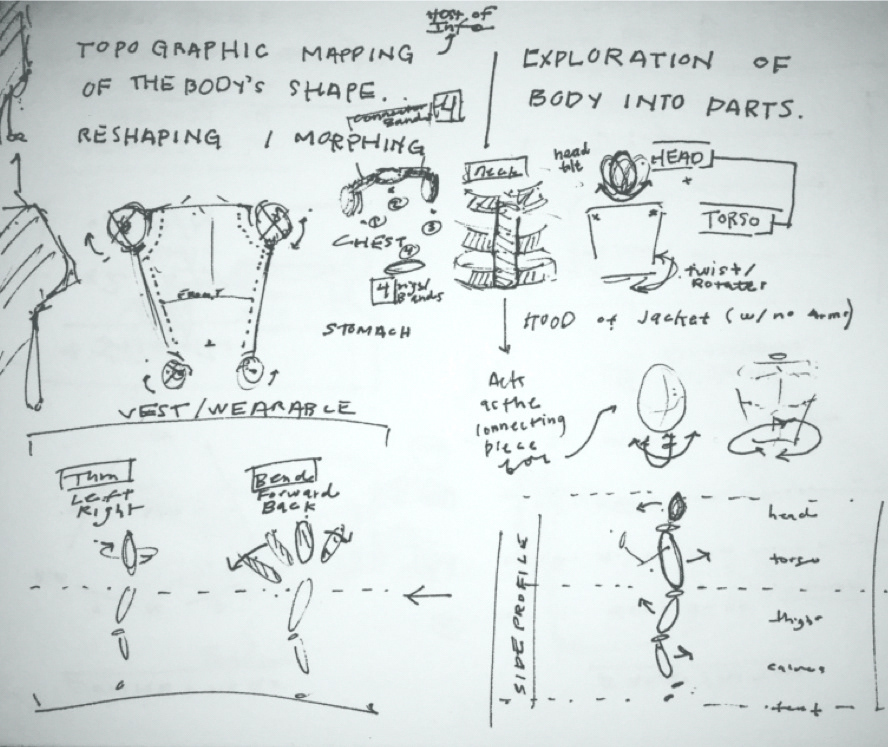 Host of
Info
TOPOGRAPHIC MAPPING
OF THE BODY'S SHAPE.
RESHAPING / MORPHING
EXPLORATION OF
BODY INTO PARTS.
Connector
Bands 4
neck
head
tilt
HEAD
+
TORSO
twist/
Rotates
1
2
3
CHEST
4
4
Bands
STOMACH
FRONT
VEST/WEARABLE
HOOD of Jacket (w/ no Arms)
Acts
as the
connecting
piece
for
Turn
Left
Right
Bend
Forward
Back
SIDE PROFILE
head
torso
thighs
calves
feet